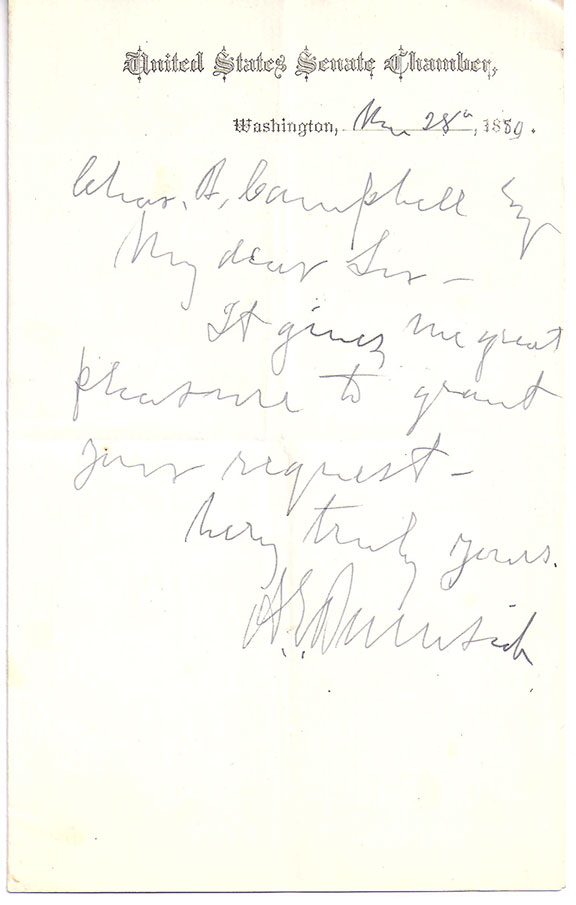 United States Senate Chamber,
Washington, Mar 28th, 1880.
Chas. A. Campbell Esq
My dear Sir –
It gives me great
pleasure to grant
your request –
Very truly yours.
A. E. Burnside